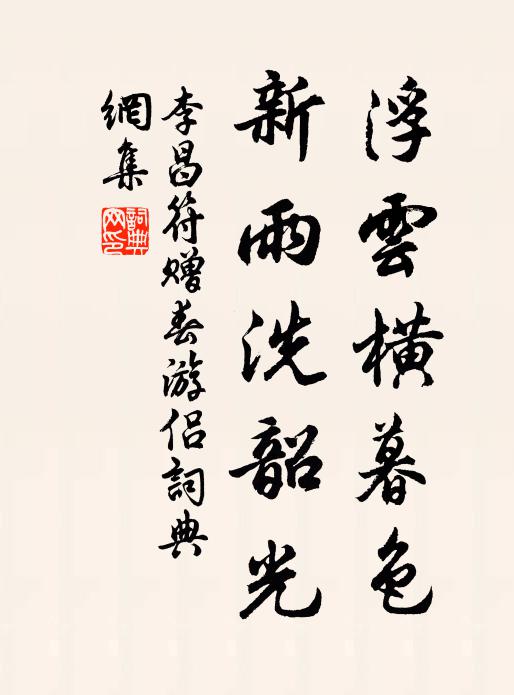 浮雲橫暮色
新雨洗韶光
李昌符赠春游侣詞典
網集
詞典網印